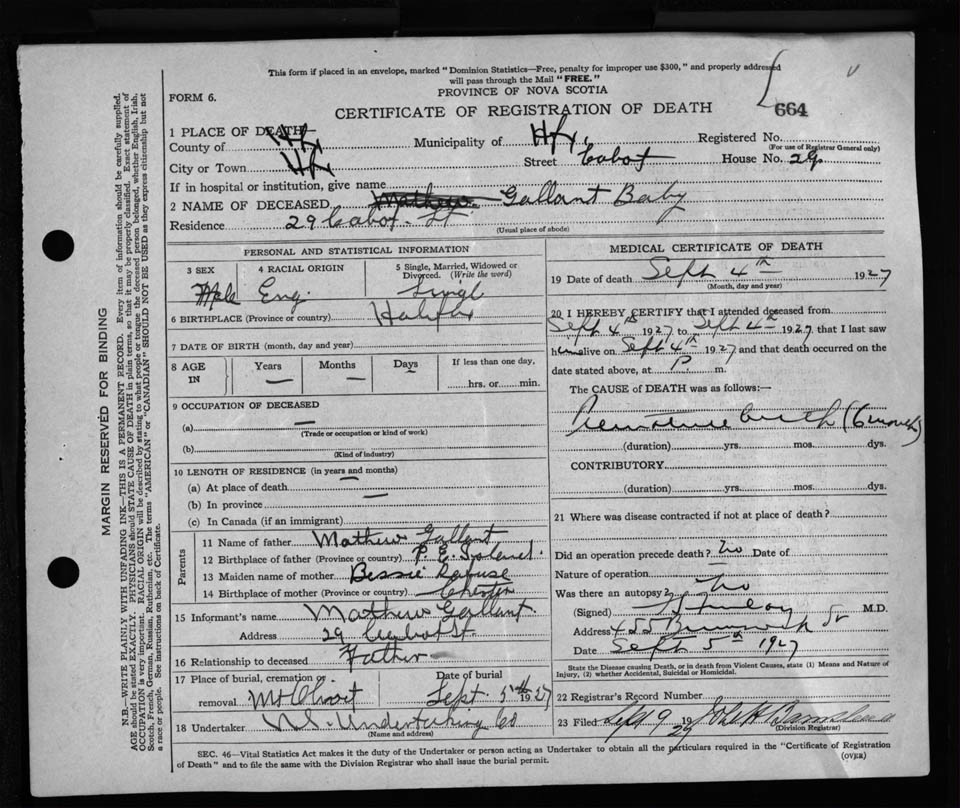 This form if placed in an envelope, marked "Dominion Statistics—Free, penalty for improper use $300," and properly addressed
will pass through the Mail "FREE."
PROVINCE OF NOVA SCOTIA
FORM 6.
CERTIFICATE OF REGISTRATION OF DEATH
664
1 PLACE OF DEATH—
County of Hfx Municipality of Hfx. Registered No.
(For use of Registrar General only)
City or Town Hfx Street Cabot House No. 29
If in hospital or institution, give name
2 NAME OF DECEASED Mathew Gallant Baby
Residence 29 Cabot St
(Usual place of abode)
PERSONAL AND STATISTICAL INFORMATION
3 SEX 4 RACIAL ORIGIN 5 Single, Married, Widowed or
Divorced. (Write the word)
Male Eng. Singl
6 BIRTHPLACE (Province or country) Halifx
7 DATE OF BIRTH (month, day and year)
8 AGE IN Years — Months — Days — If less than one day,
hrs. or min.
9 OCCUPATION OF DECEASED
(a) —
(Trade or occupation or kind of work)
(b)
(Kind of industry)
10 LENGTH OF RESIDENCE (in years and months)
(a) At place of death —
(b) In province —
(c) In Canada (if an immigrant)
Parents
11 Name of father Mathew Gallant
12 Birthplace of father (Province or country) P. E. Island.
13 Maiden name of mother Bessie Rafuse
14 Birthplace of mother (Province or country) Chester
15 Informant's name Mathew Gallant.
Address 29 Cabot St.
16 Relationship to deceased Father
17 Place of burial, cremation or
removal Mt Olivet
Date of burial
Sept. 5th 1927
18 Undertaker N.S. Undertaking Co
(Name and address)
MEDICAL CERTIFICATE OF DEATH
19 Date of death Sept 4th 1927
(Month, day and year)
20 I HEREBY CERTIFY that I attended deceased from
Sept 4th 1927 to Sept 4th 1927, that I last saw
him alive on Sept 4th 1927 and that death occurred on the
date stated above, at P. m.
The CAUSE of DEATH was as follows:—
Premature birth (6 months)
(duration) yrs. mos. dys.
CONTRIBUTORY
(duration) yrs. mos. dys.
21 Where was disease contracted if not at place of death?
Did an operation precede death? no Date of
Nature of operation
Was there an autopsy? no
(Signed) M.D.
Address 455 Brunswick St
Date Sept 5th 1927
State the Disease causing Death, or in death from Violent Causes, state (1) Means and Nature of
Injury, (2) whether Accidental, Suicidal or Homicidal.
22 Registrar's Record Number
23 Filed Sept 9 19 John H
(Division Registrar)
SEC. 46—Vital Statistics Act makes it the duty of the Undertaker or person acting as Undertaker to obtain all the particulars required in the "Certificate of Registration
of Death" and to file the same with the Division Registrar who shall issue the burial permit.
(OVER)
MARGIN RESERVED FOR BINDING
N.B.—WRITE PLAINLY WITH UNFADING INK—THIS IS A PERMANENT RECORD. Every item of information should be carefully supplied.
AGE should be stated EXACTLY. PHYSICIANS should STATE CAUSE OF DEATH in plain terms, so that it may be properly classified. Exact statement of
OCCUPATION is very important. RACIAL ORIGIN will be described by stating to what people or tongue the deceased person belonged, whether English, Irish,
Scotch, French, German, Russian, Ruthenian, etc. The terms "AMERICAN" or "CANADIAN" SHOULD NOT BE USED as they express citizenship but not
a race or people. See instructions on back of Certificate.